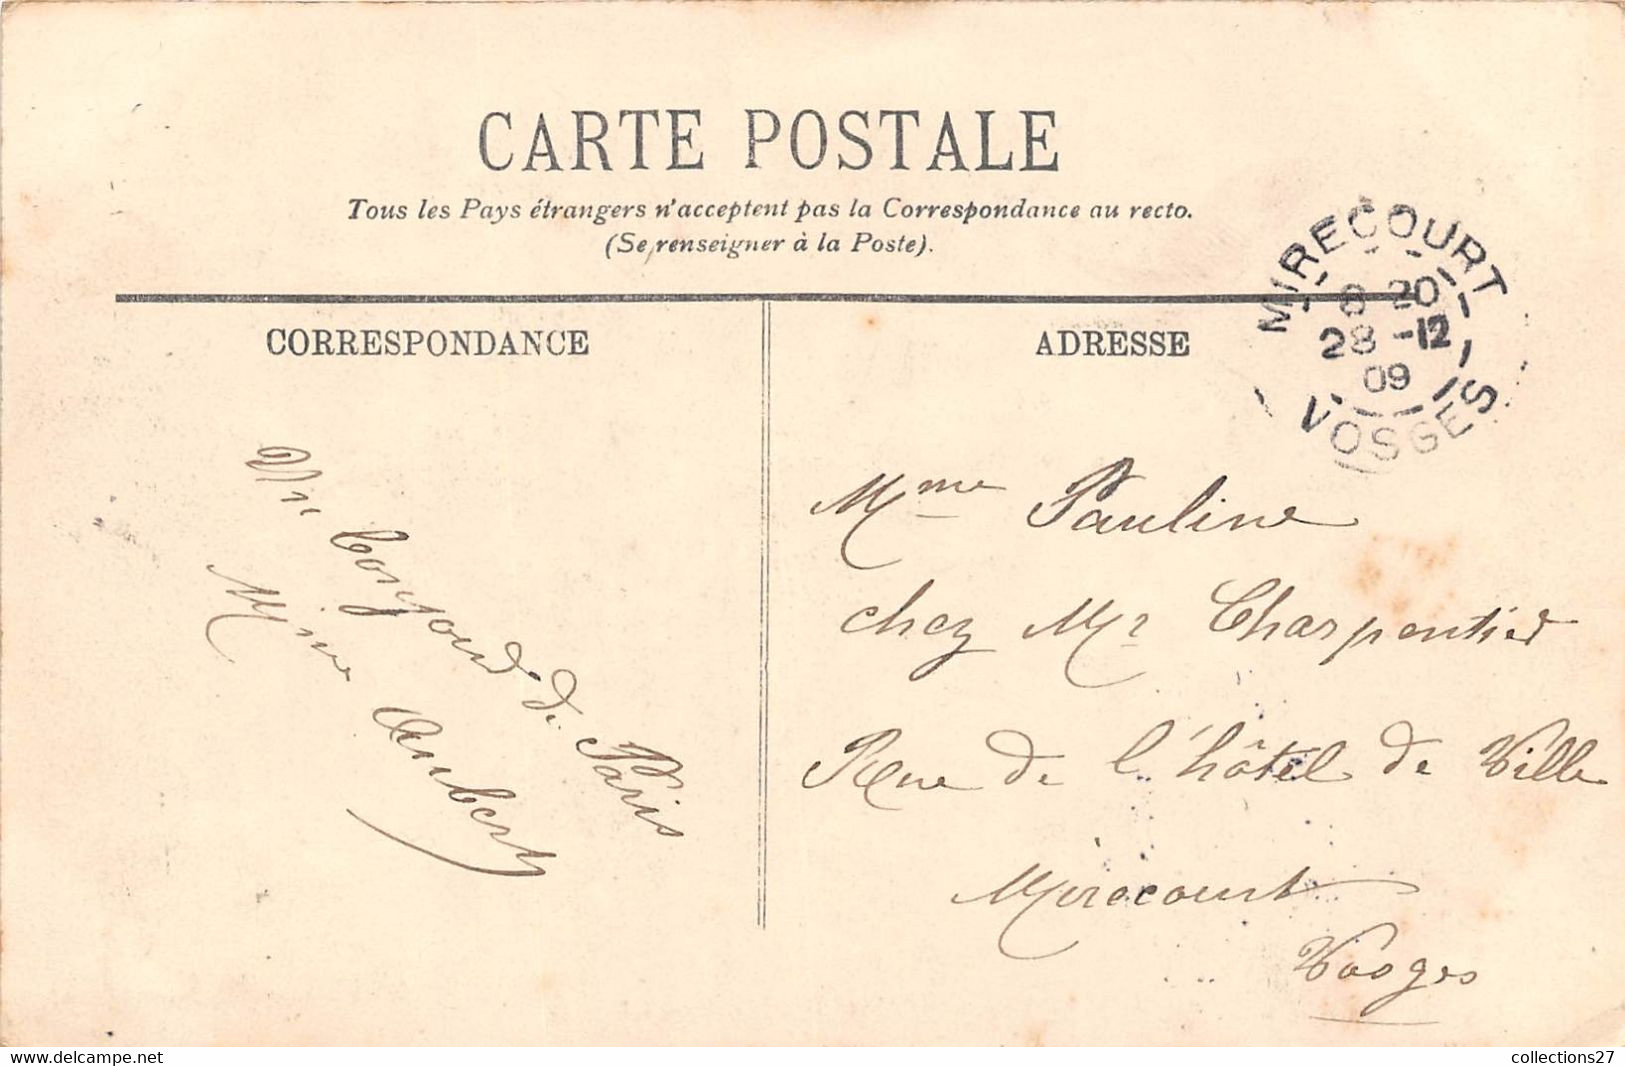 CARTE POSTALE
Tous les Pays étrangers n'acceptent pas la Correspondance au recto.
(Se renseigner à la Poste).
MIRECOURT
8 20
28 -12
09
VOSGES
CORRESPONDANCE
Un bonjour de Paris
Mme Aubery
ADRESSE
Mme Pauline
chez Mr Charpentier
Rue de l'hôtel de Ville
Mirecourt
Vosges
collections27